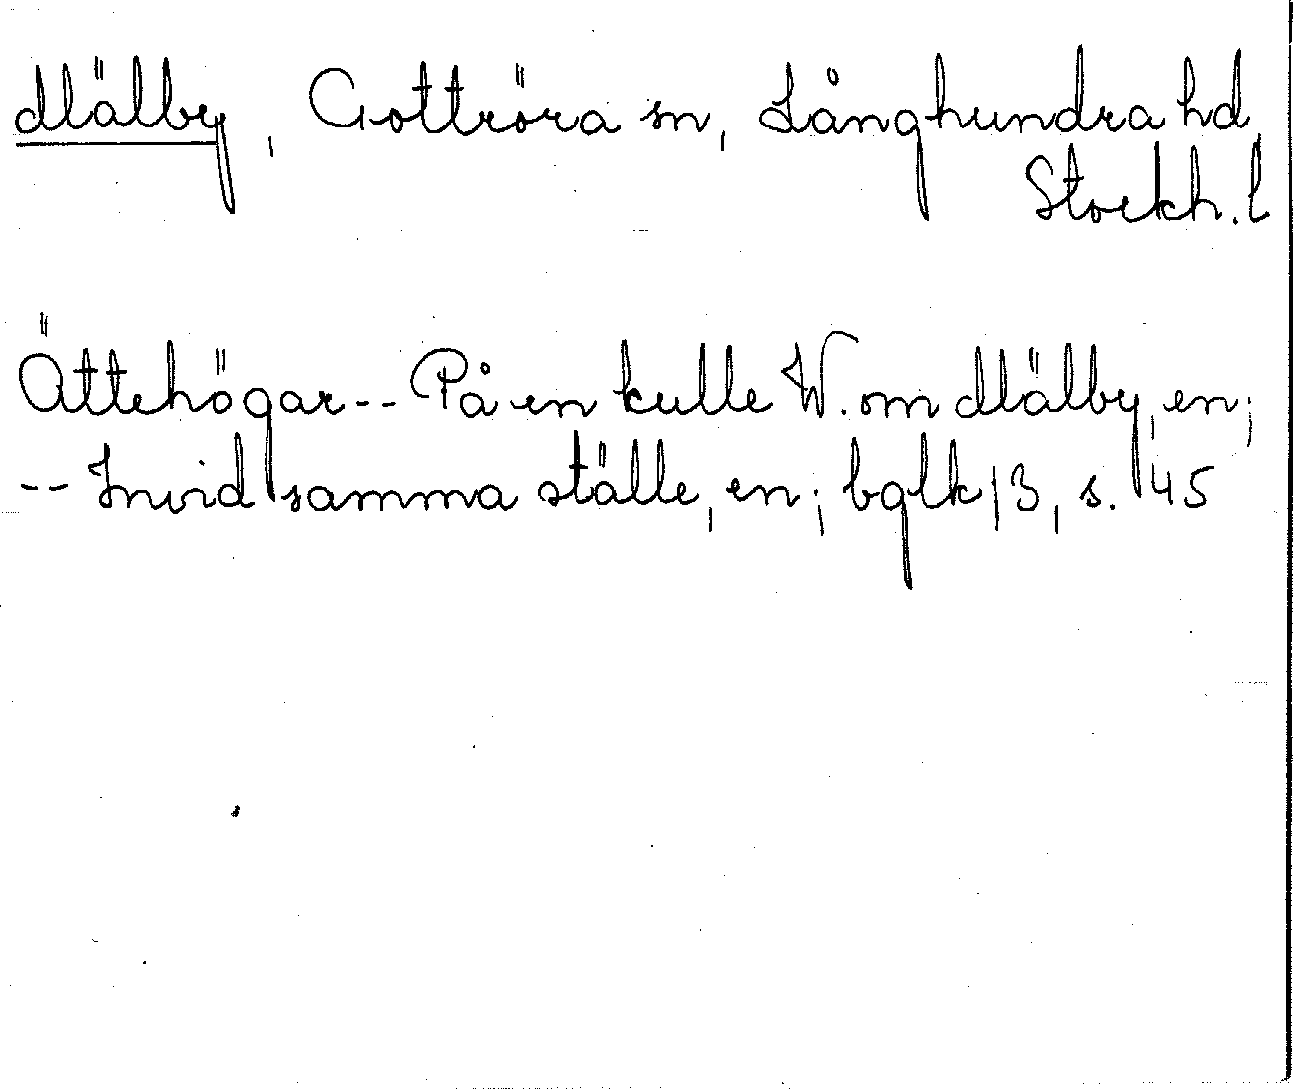 Mälby, Gottröra sn, Långhundra hd,
Stockh. l
Ättehögar -- På en kulle W. om Mälby, en;
-- Invid samma ställe, en; bglk 13, s. 45